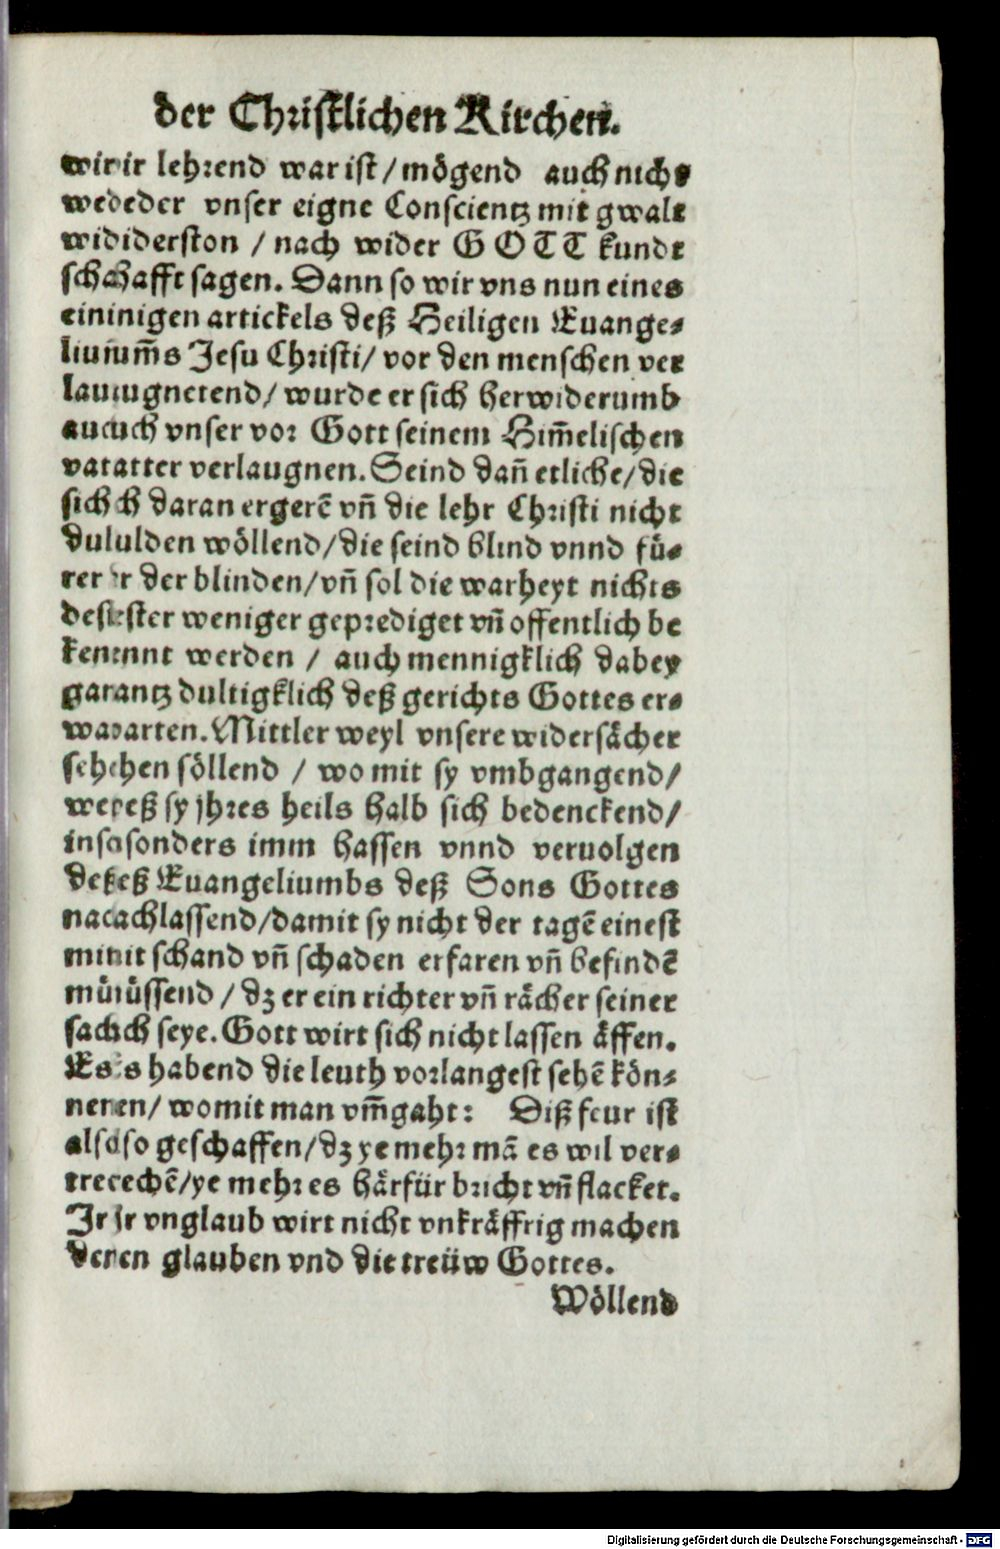 der Christlichen Kirchen.
wirir lehrend war ist / mögend auch nichs
wededer vnser eigne Conscientz mit gwalt
wididerston / nach wider GOTT kundt
schahafft sagen. Dann so wir vns nun eines
eininigen artickels deß Heiligen Euange-
liuium̄s Jesu Christi / vor den menschen ver
lauiugnetend / wurde er sich herwiderumb
aucuch vnser vor Gott seinem Him̄elischen
vatatter verlaugnen. Seind dañ etliche / die
sichch daran ergerē vñ die lehr Christi nicht
dululden wöllend / die seind blind vnnd fü-
rerer der blinden / vñ sol die warheyt nichts
desester weniger geprediget vñ offentlich be
kenennt werden / auch mennigklich dabey
garantz dultigklich deß gerichts Gottes er-
wavarten. Mittler weyl vnsere widersächer
sehehen söllend / wo mit sy vmbgangend /
wereß sy jhres heils halb sich bedenckend /
insosonders imm hassen vnnd veruolgen
deßeß Euangeliumbs deß Sons Gottes
nacachlassend / damit sy nicht der tagē einest
mitit schand vñ schaden erfaren vñ befindē
müiüssend / dz er ein richter vñ rächer seiner
sachch seye. Gott wirt sich nicht lassen äffen.
Es s habend die leuth vorlangest sehē kön-
neren / womit man vm̄gaht: Diß feur ist
alsoso geschaffen / dz ye mehr mā es wil ver-
trecechē / ye mehr es härfür bricht vñ flacket.
Jr Jr vnglaub wirt nicht vnkräfftig machen
deren glauben vnd die treüw Gottes.
Wöllend
Digitalisierung gefördert durch die Deutsche Forschungsgemeinschaft - DFG